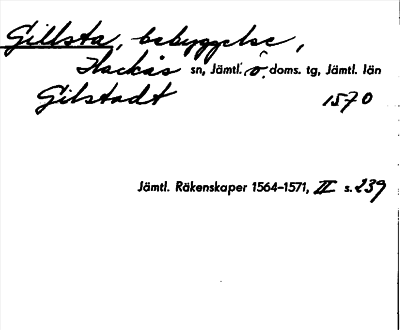 Gillsta, bebyggelse,
Hackås sn, Jämtl. ö. doms. tg, Jämtl. län
Gilstadt 1570
Jämtl. Räkenskaper 1564-1571, II s. 239